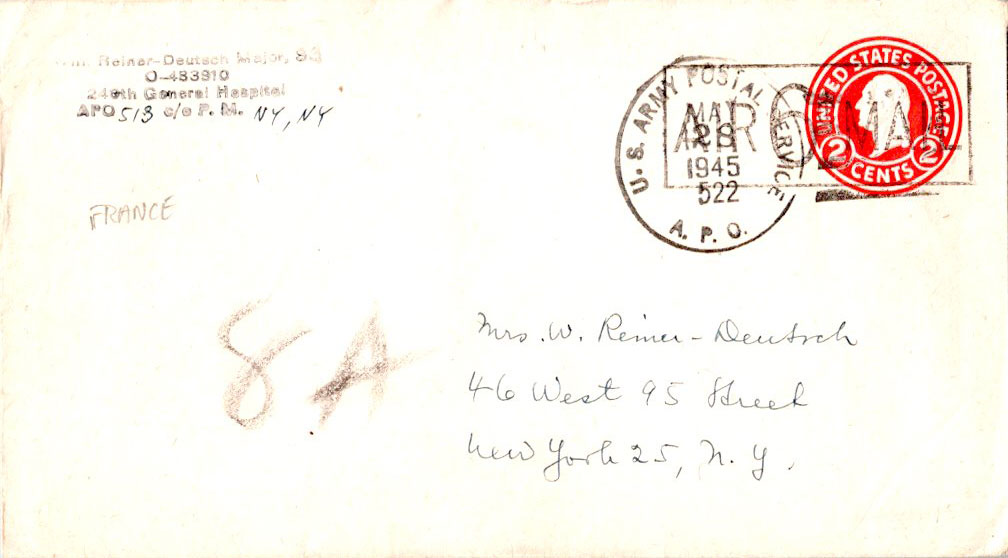 Reiner-Deutsch Major, 93
O-483910
General Hospital
APO 513 c/o P. M. NY, NY
FRANCE
U. S. ARMY POSTAL SERVICE
28
1945
522
A. P. O.
AIR MAIL
UNITED STATES POSTAGE
2 CENTS 2
8A
Mrs. W. Reiner-Deutsch
46 West 95 Street
New York 25, N. Y.